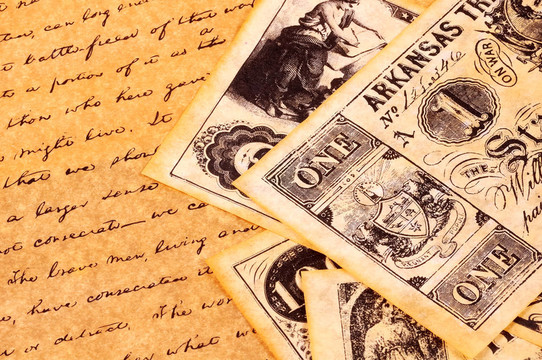 can long en
battle-field of that wo
a portion of it as a
those who here gave
might live. It
that we shou
a larger sense
not consecrate — we ca
The brave men, living and
have consecrated it
or detract. The wor
what we
ARKANSAS TR
No
ON WAR
1
1
ONE
THE
St
Will
pai
ONE
1